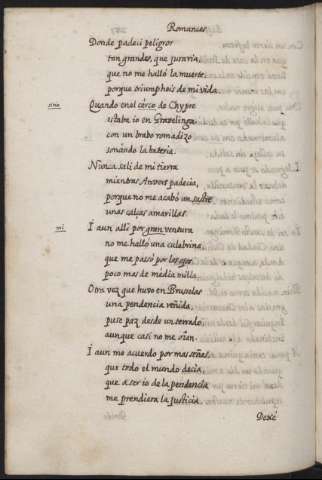 Romances
Donde padeci peligros
tan grandes, que juraria,
que no me halló la muerte,
porque triumphais de mi vida.
sino
Quando en al cerco de Chypre
estaba io en Gravelinga
con un brabo romadizo
sonando la bateria.
Nunca sali de mi tierra
mientras Anvers padecia,
porque no me acabó un sastre
unas calças amarillas.
ni
I aun alli por gran ventura
no me halló una culebrina,
que me passó por los ojos
poco mas de media milla.
Otra vez que huvo en Bruselas
una pendencia reñida,
puse paz desde un terrado,
aunque casi no me oian.
I aun me acuerdo por mas señas,
que todo el mundo decia,
que a ser io de la pendencia
me prendiera la justicia.
Dexé